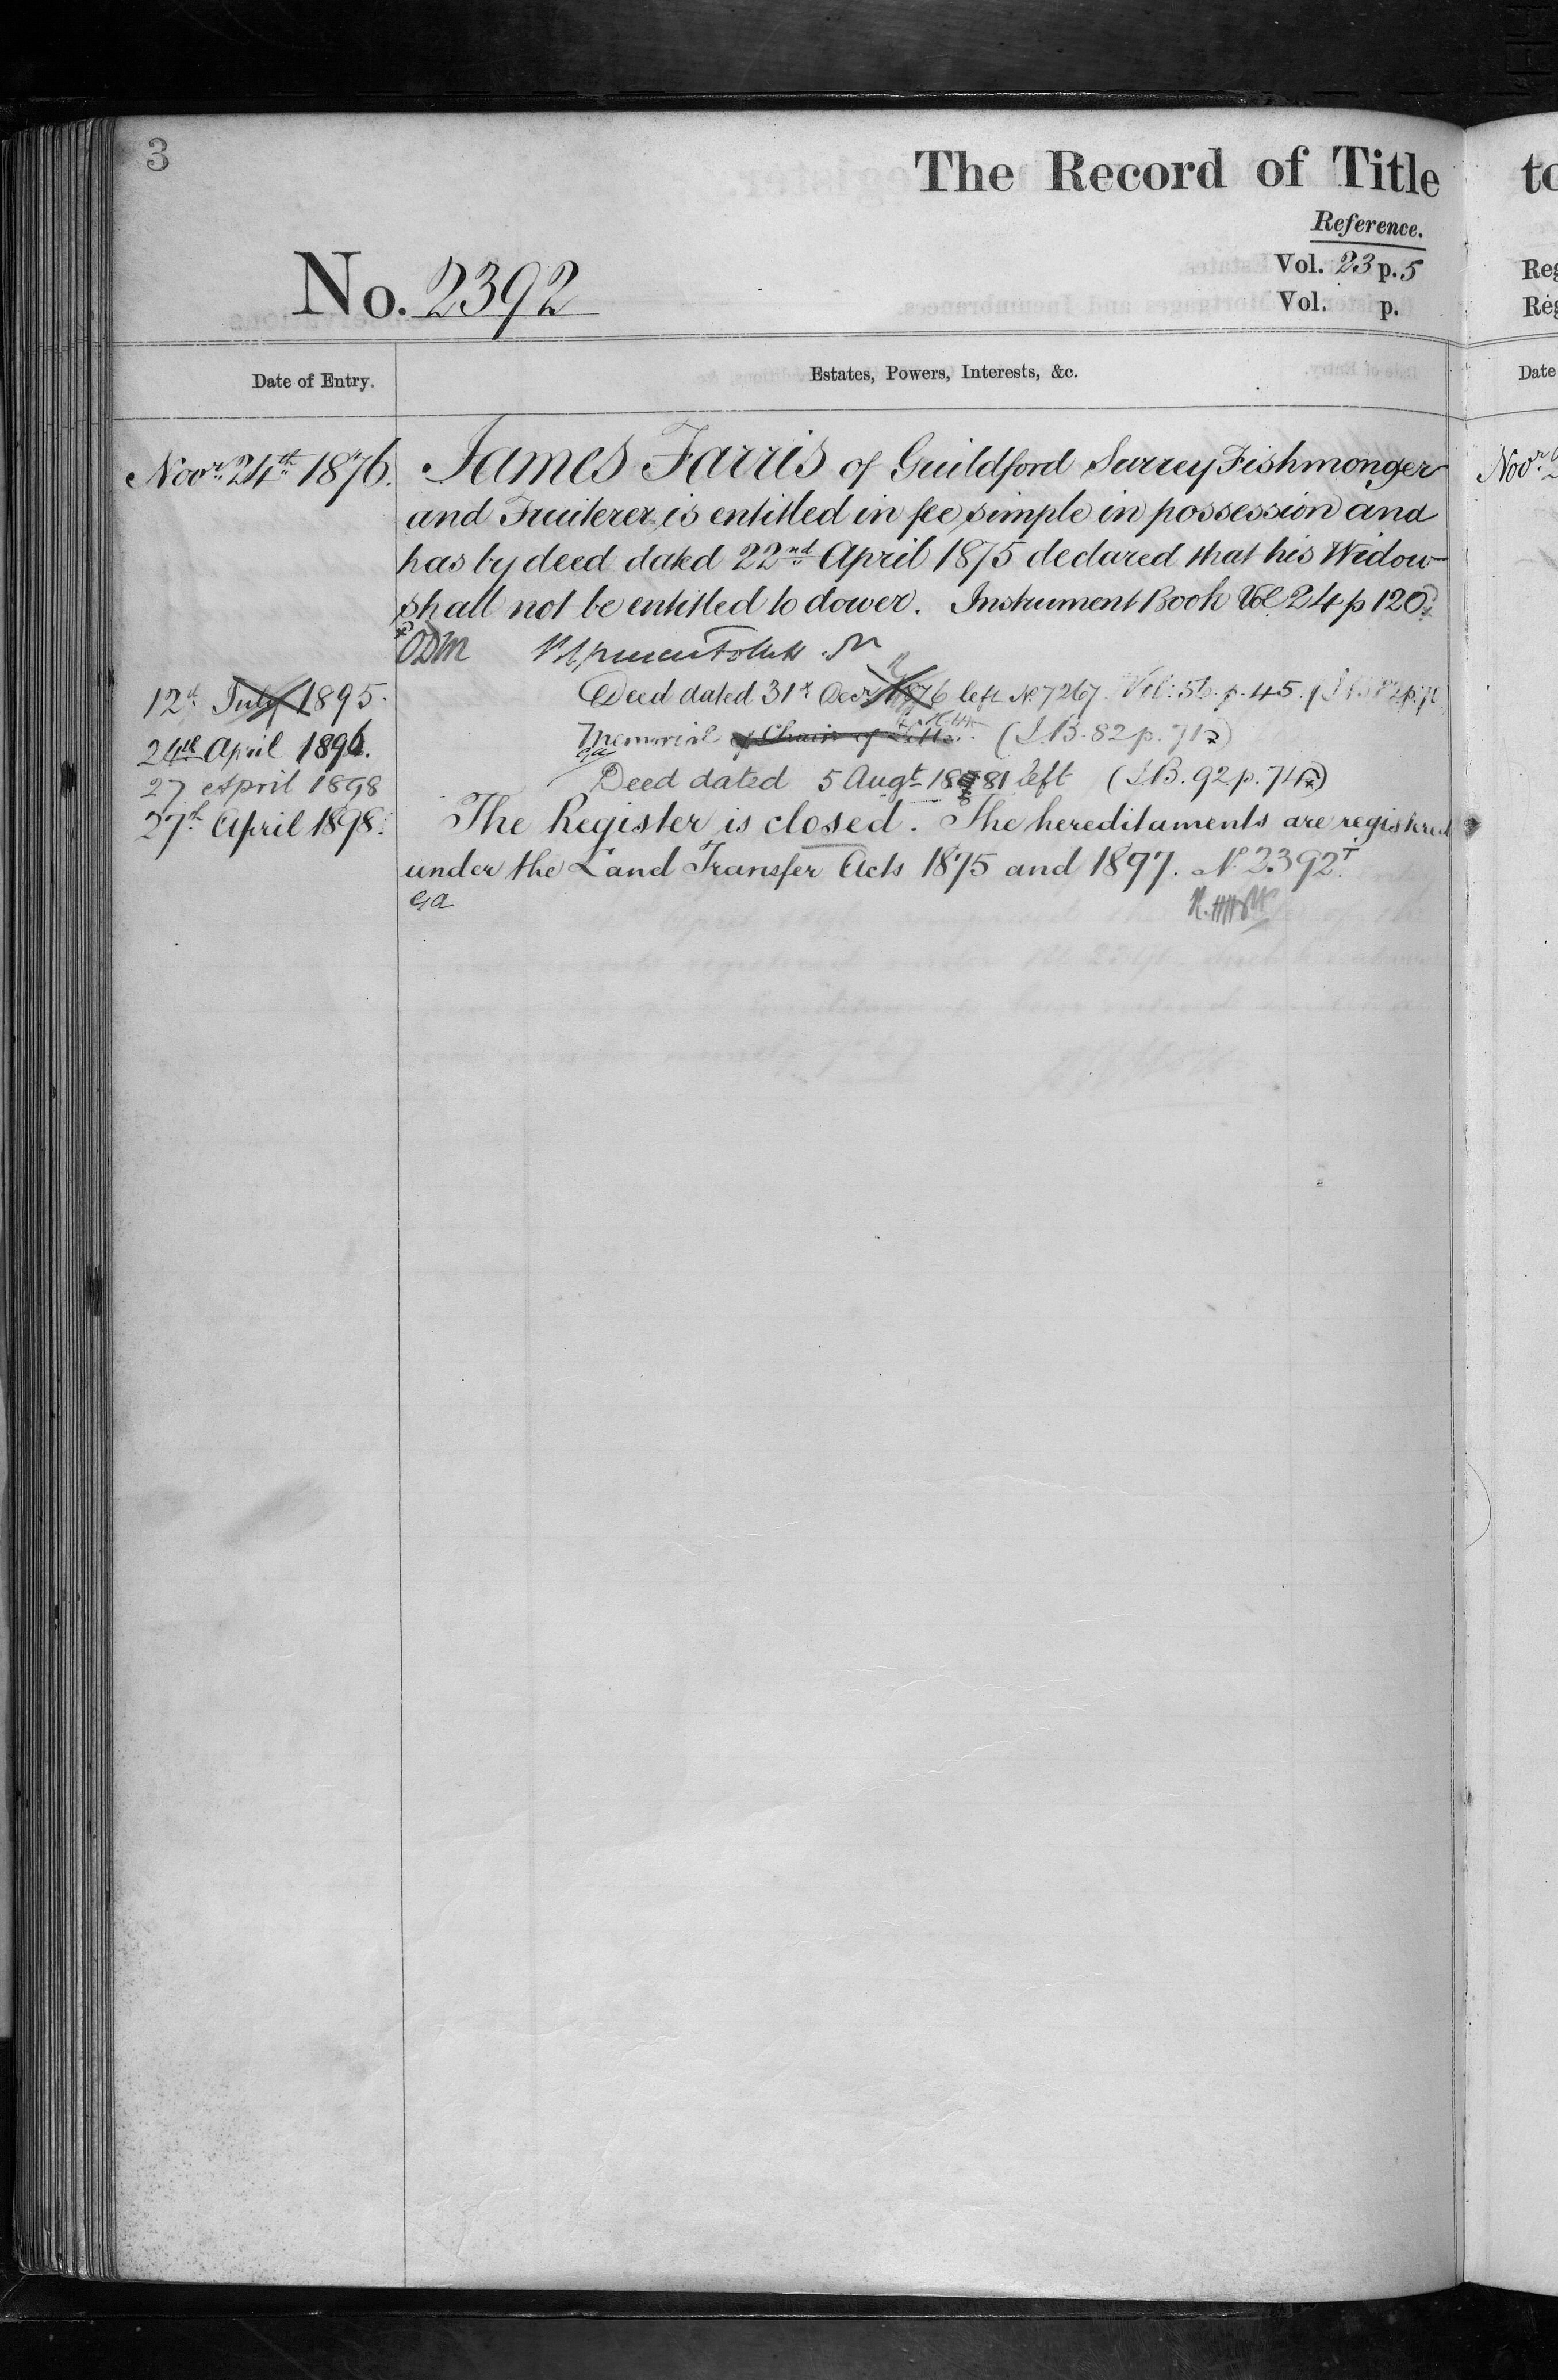 3
The Record of Title
Reference.
No. 2392
Vol. 23 p. 5
Vol. p.
Date of Entry.
Estates, Powers, Interests, &c.
Novr. 24th 1876. James Farris of Guildford Surrey Fishmonger
and Fruiterer is entitled in fee simple in possession and
has by deed dated 22nd April 1875 declared that his Widow
shall not be entitled to dower. Instrument Book Vol 24 p 120
ODM
12th July 1895. Deed dated 31st Decr 1876 left No 7267. Vol: 56. p. 45.
24th April 1896. Memorial of Chain of Title. (I.B. 82 p. 71)
27 April 1898 Deed dated 5 Augt 1881 left (I.B. 92 p. 74)
27th April 1898. The Register is closed. The hereditaments are registered
under the Land Transfer Acts 1875 and 1897. No 2392T
ga
to
Reg
Reg
Date
Novr